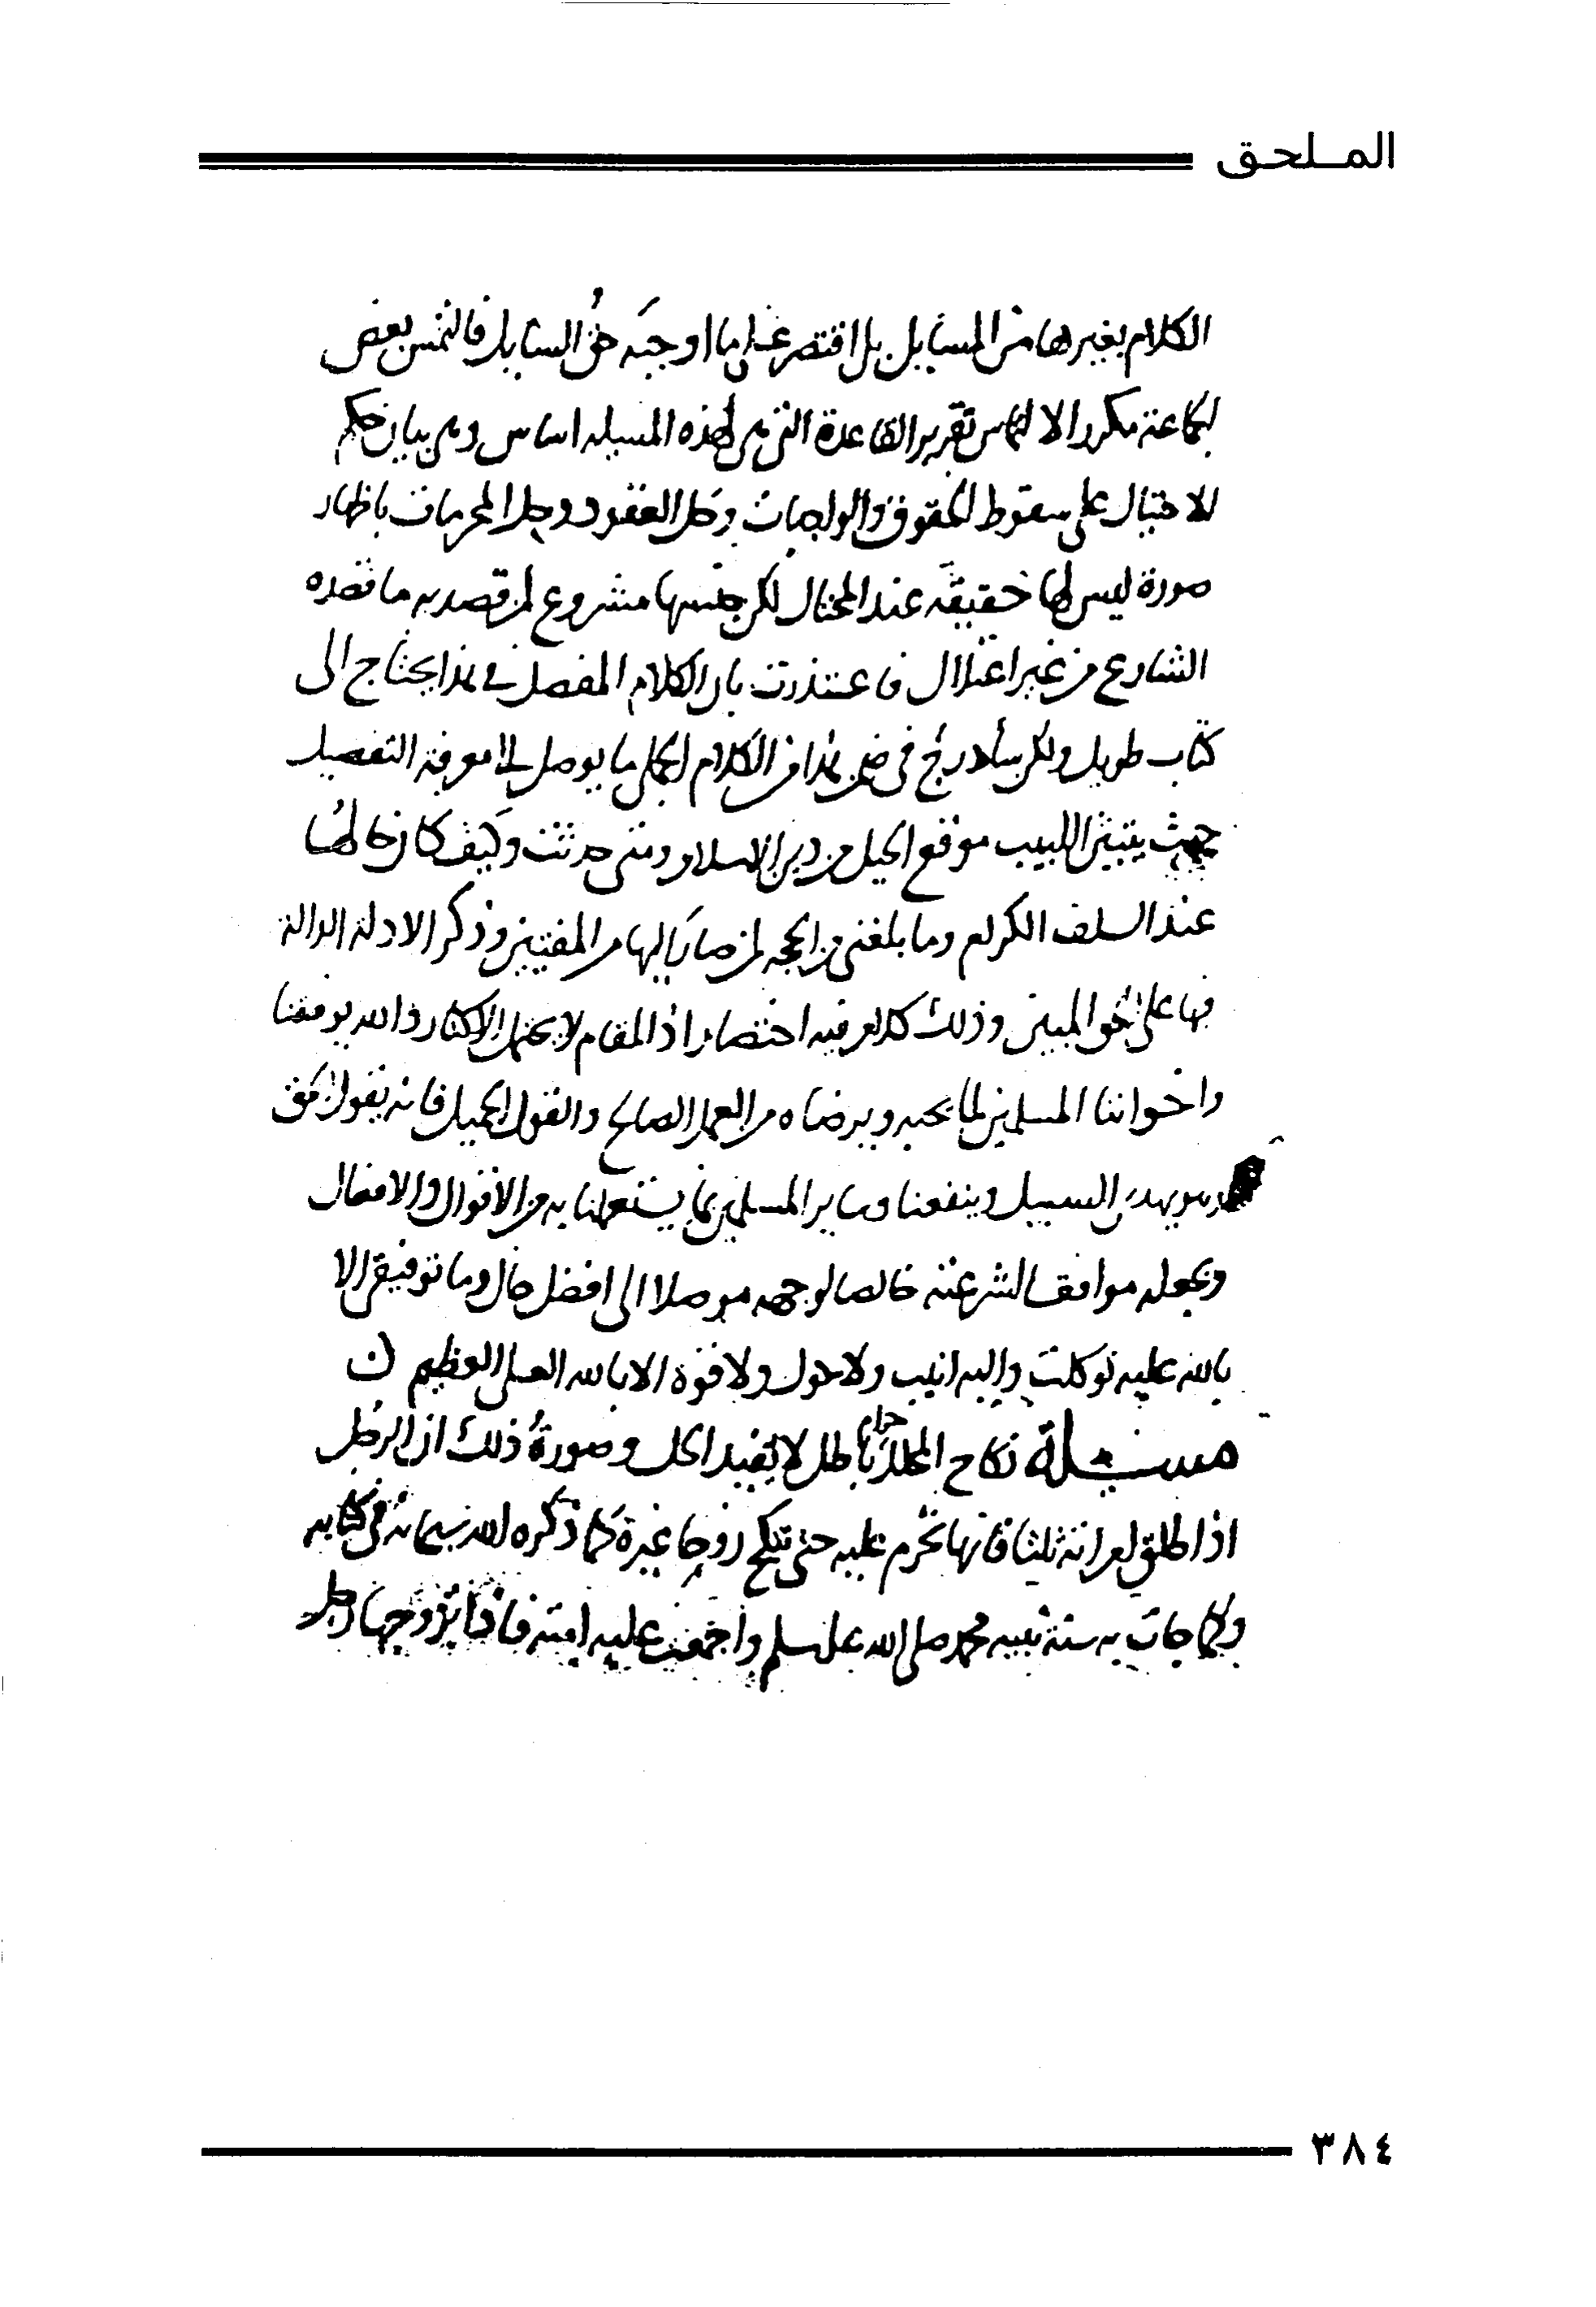 الملحق
الكلام بغيرها من المسايل بل اقتصر على ما اوجبه حق السايل فالتمس بعض
الجماعة مكررا الالتماس تقرير القاعدة التي هي لهذه المسيله اساس وهي بيان حكم
الاحتيال على سقوط الحقوق والواجبات وحل العقود وحل المحرمات باظهار
صورة ليس لها حقيقة عند المحتال لكن جنسها مشروع لمن قصد به ما قصده
الشارع من غير اعتلال فاعتذرت بان الكلام المفصل في هذا يحتاج الى
كتاب طويل ولكن سأدرج في ضمن هذا من الكلام الجملي ما يوصل الى معرفة التفصيل
بحيث يتبين اللبيب موقع الحيل من دين الاسلام ومتى حدثت وكيف كان حالها
عند السلف الكرام وما بلغني من الحجه لمن صار اليها من المفتيين وذكر الادلة الدالة
فيها على الحق المبين وذلك كلام فيه اختصار اذ المقام لا يحتمل الاكثار والله يوفقنا
واخواننا المسلمين لما يحبه ويرضاه من العمل الصالح والقول الجميل فانه يقول الحق
وهو يهدي السبيل وينفعنا وساير المسلمين بما يستعملنا به من الاقوال والافعال
ويجعله موافقا لشرعته خالصا لوجهه موصلا الى افضل حال وما توفيقي الا
بالله عليه توكلت واليه انيب ولا حول ولا قوة الا بالله العلي العظيم
مسئلة نكاح المحلل حرام باطل لا يفيد الحل وصورة ذلك ان الرجل
اذا طلق امراته ثلثا فانها تحرم عليه حتى تنكح زوجا غيره كما ذكره الله سبحانه في كتابه
وكما جات به سنة نبيه محمد صلى الله عليه وسلم واجمعت عليه امته فاذا تزوجها رجل
٣٨٤